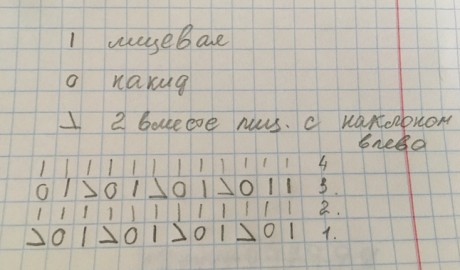 | лицевая
0 накид
⅄ 2 вместе лиц. с наклоном
влево
| | | | | | | | | | | | 4
0 | > 0 | > 0 | > 0 | | 3.
| | | | | | | | | | | | 2.
> 0 | > 0 | > 0 | > 0 | 1.